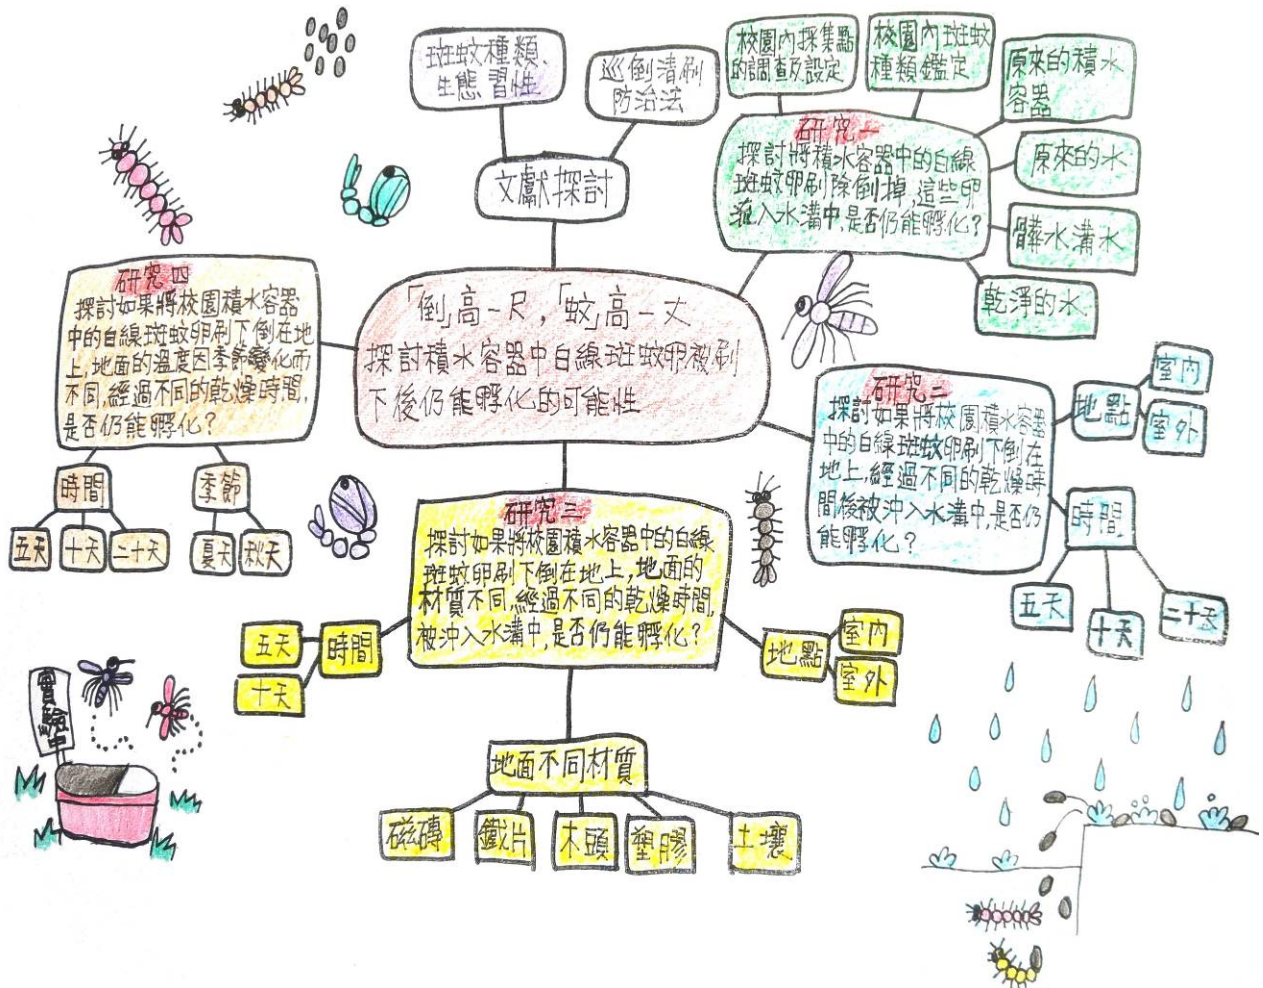 斑蚊種類、
生態習性
巡倒清刷
防治法
文獻探討
校園內採集點
的調查及設定
校園內斑蚊
種類鑑定
原來的積水
容器
原來的水
髒水溝水
乾淨的水
研究一
探討將積水容器中的白線
斑蚊卵刷除倒掉,這些卵
流入水溝中,是否仍能孵化?
「倒」高一尺,「蚊」高一丈
探討積水容器中白線斑蚊卵被刷
下後仍能孵化的可能性
研究四
探討如果將校園積水容器
中的白線斑蚊卵刷下倒在地
上,地面的溫度因季節變化而
不同,經過不同的乾燥時間,
是否仍能孵化?
時間
季節
五天
十天
二十天
夏天
秋天
研究二
探討如果將校園積水容器
中的白線斑蚊卵刷下倒在
地上,經過不同的乾燥時
間後被沖入水溝中,是否仍
能孵化?
地點
室內
室外
時間
五天
十天
二十天
研究三
探討如果將校園積水容器中的白線
斑蚊卵刷下倒在地上,地面的
材質不同,經過不同的乾燥時間,
被沖入水溝中,是否仍能孵化?
時間
五天
十天
地點
室內
室外
地面不同材質
磁磚
鐵片
木頭
塑膠
土壤
實驗中